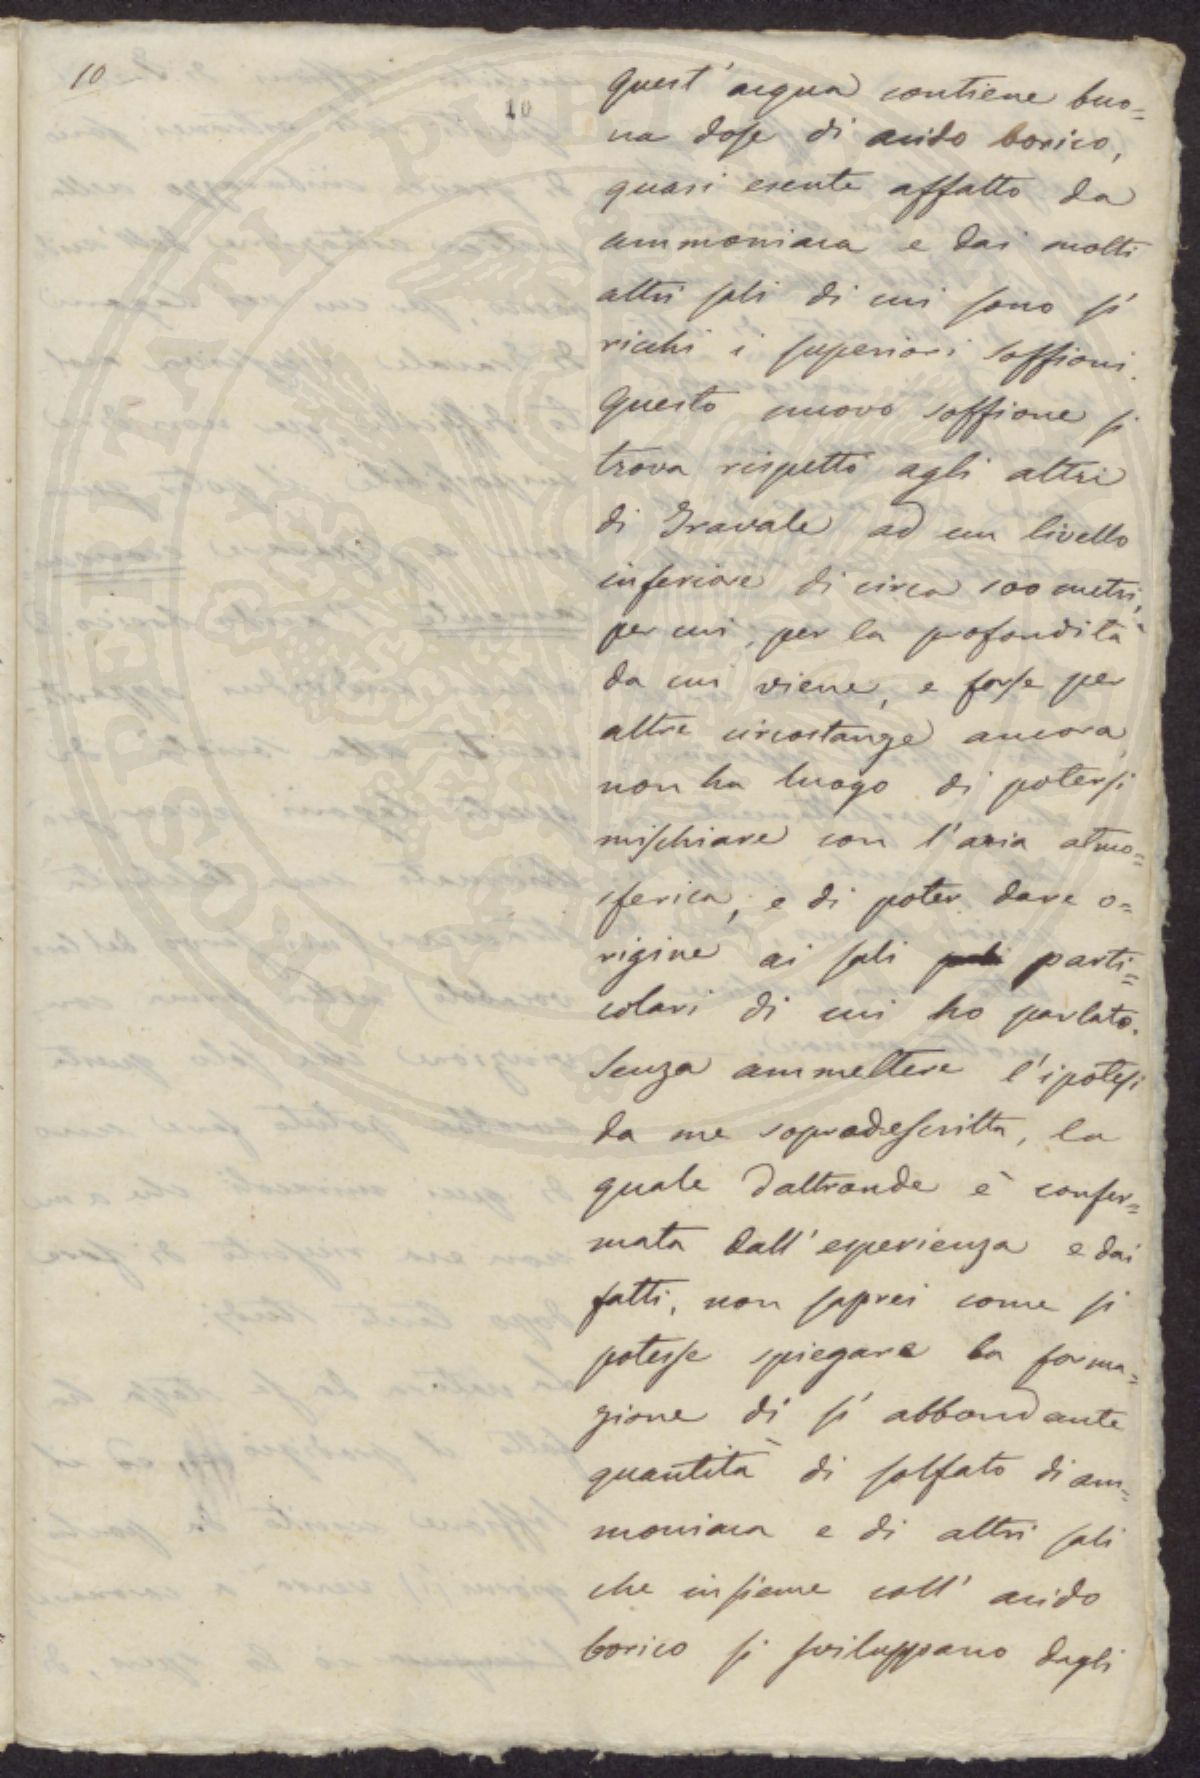 10
10
quest' acqua contiene buo=
na dose di acido borico,
quasi esente affatto da
ammoniaca e dai molti
altri sali di cui sono sì
ricchi i superiori soffioni.
Questo nuovo soffione si
trova rispetto agli altri
di Travale ad un livello
inferiore di circa 100 metri,
per cui, per la profondità
da cui viene, e forse per
altre circostanze ancora,
non ha luogo di potersi
mischiare con l'aria atmo=
sferica, e di poter dare o=
rigine ai sali parti=
colari di cui ho parlato.
Senza ammettere l'ipotesi
da me sopradescritta, la
quale daltronde è confer=
mata dall'esperienza e dai
fatti, non saprei come si
potesse spiegare la forma=
zione di sì abbondante
quantità di solfato di am=
moniaca e di altri sali
che insieme coll' acido
borico si sviluppano dagli